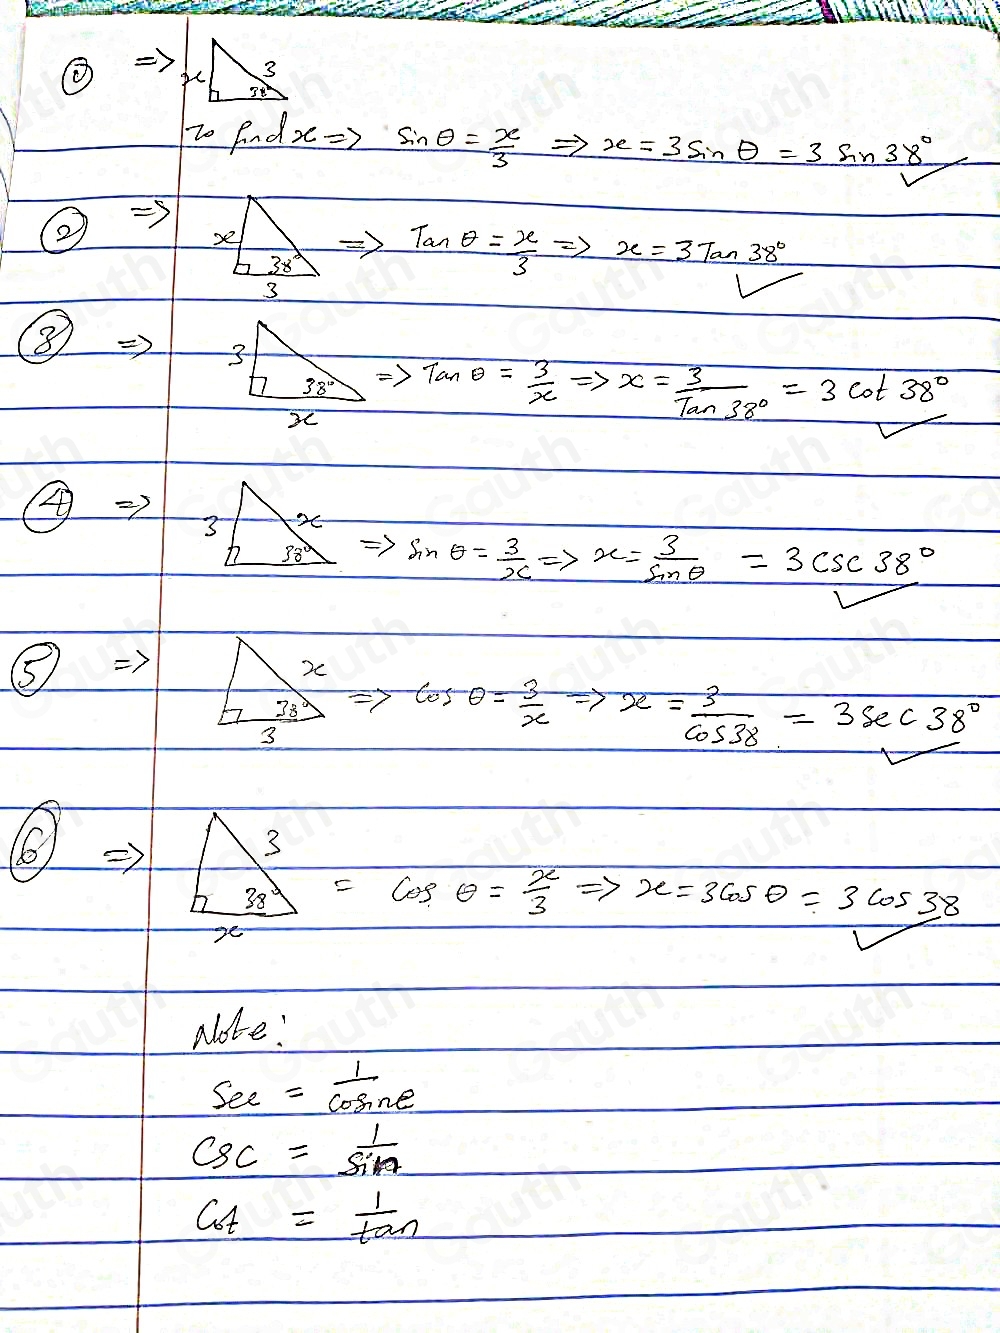 ① => x 3 38°
To find x => sin θ = x/3 => x = 3 sin θ = 3 sin 38° ✓
② => x 38° 3 => Tan θ = x/3 => x = 3 Tan 38° ✓
③ => 3 38° x => Tan θ = 3/x => x = 3/Tan 38° = 3 cot 38° ✓
④ => 3 x 38° => sin θ = 3/x => x = 3/sin θ = 3 csc 38° ✓
⑤ => x 38° 3 => cos θ = 3/x => x = 3/cos 38 = 3 sec 38° ✓
⑥ => 3 38° x = cos θ = x/3 => x = 3 cos θ = 3 cos 38 ✓
Note:
Sec = 1/cosine
Csc = 1/sin
Cot = 1/tan
Gauth